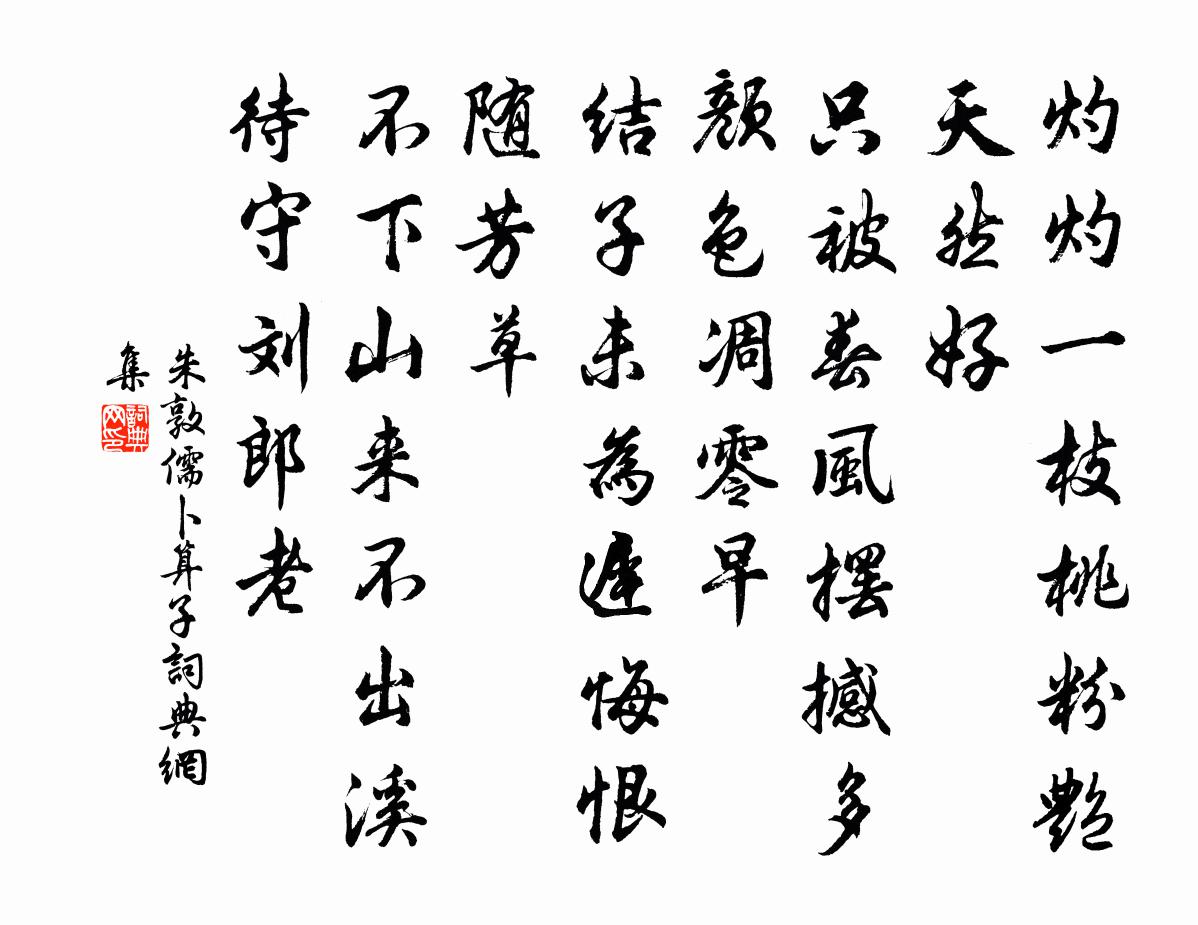 灼灼一枝桃粉艷
天然好
只被春風擺撼多
顏色凋零早
结子未為遲悔恨
随芳草
不下山来不出溪
待守刘郎老
朱敦儒卜算子詞典網
集
詞典网印